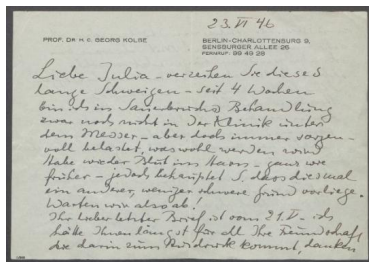 23. VI 46
PROF. DR. H. C. GEORG KOLBE
BERLIN-CHARLOTTENBURG 9,
SENSBURGER ALLEE 25
FERNRUF: 99 49 28
Liebe Julia – verzeihen Sie dieses
lange Schweigen – seit 4 Wochen
bin ich in Sauerbruchs Behandlung
zwar noch nicht in der Klinik unter
dem Messer – aber doch immer sorgen-
voll belastet, was wohl werden wird
Habe wieder Blut im Harn – ganz wie
früher – jedoch behauptet S. dass diesmal
ein anderer, weniger schwerer Grund vorliege.
Warten wir also ab!
Ihr lieber letzter Brief ist vom 21. V – ich
hätte Ihnen längst für all Ihre Freundschaft
die darin zum Ausdruck kommt, danken